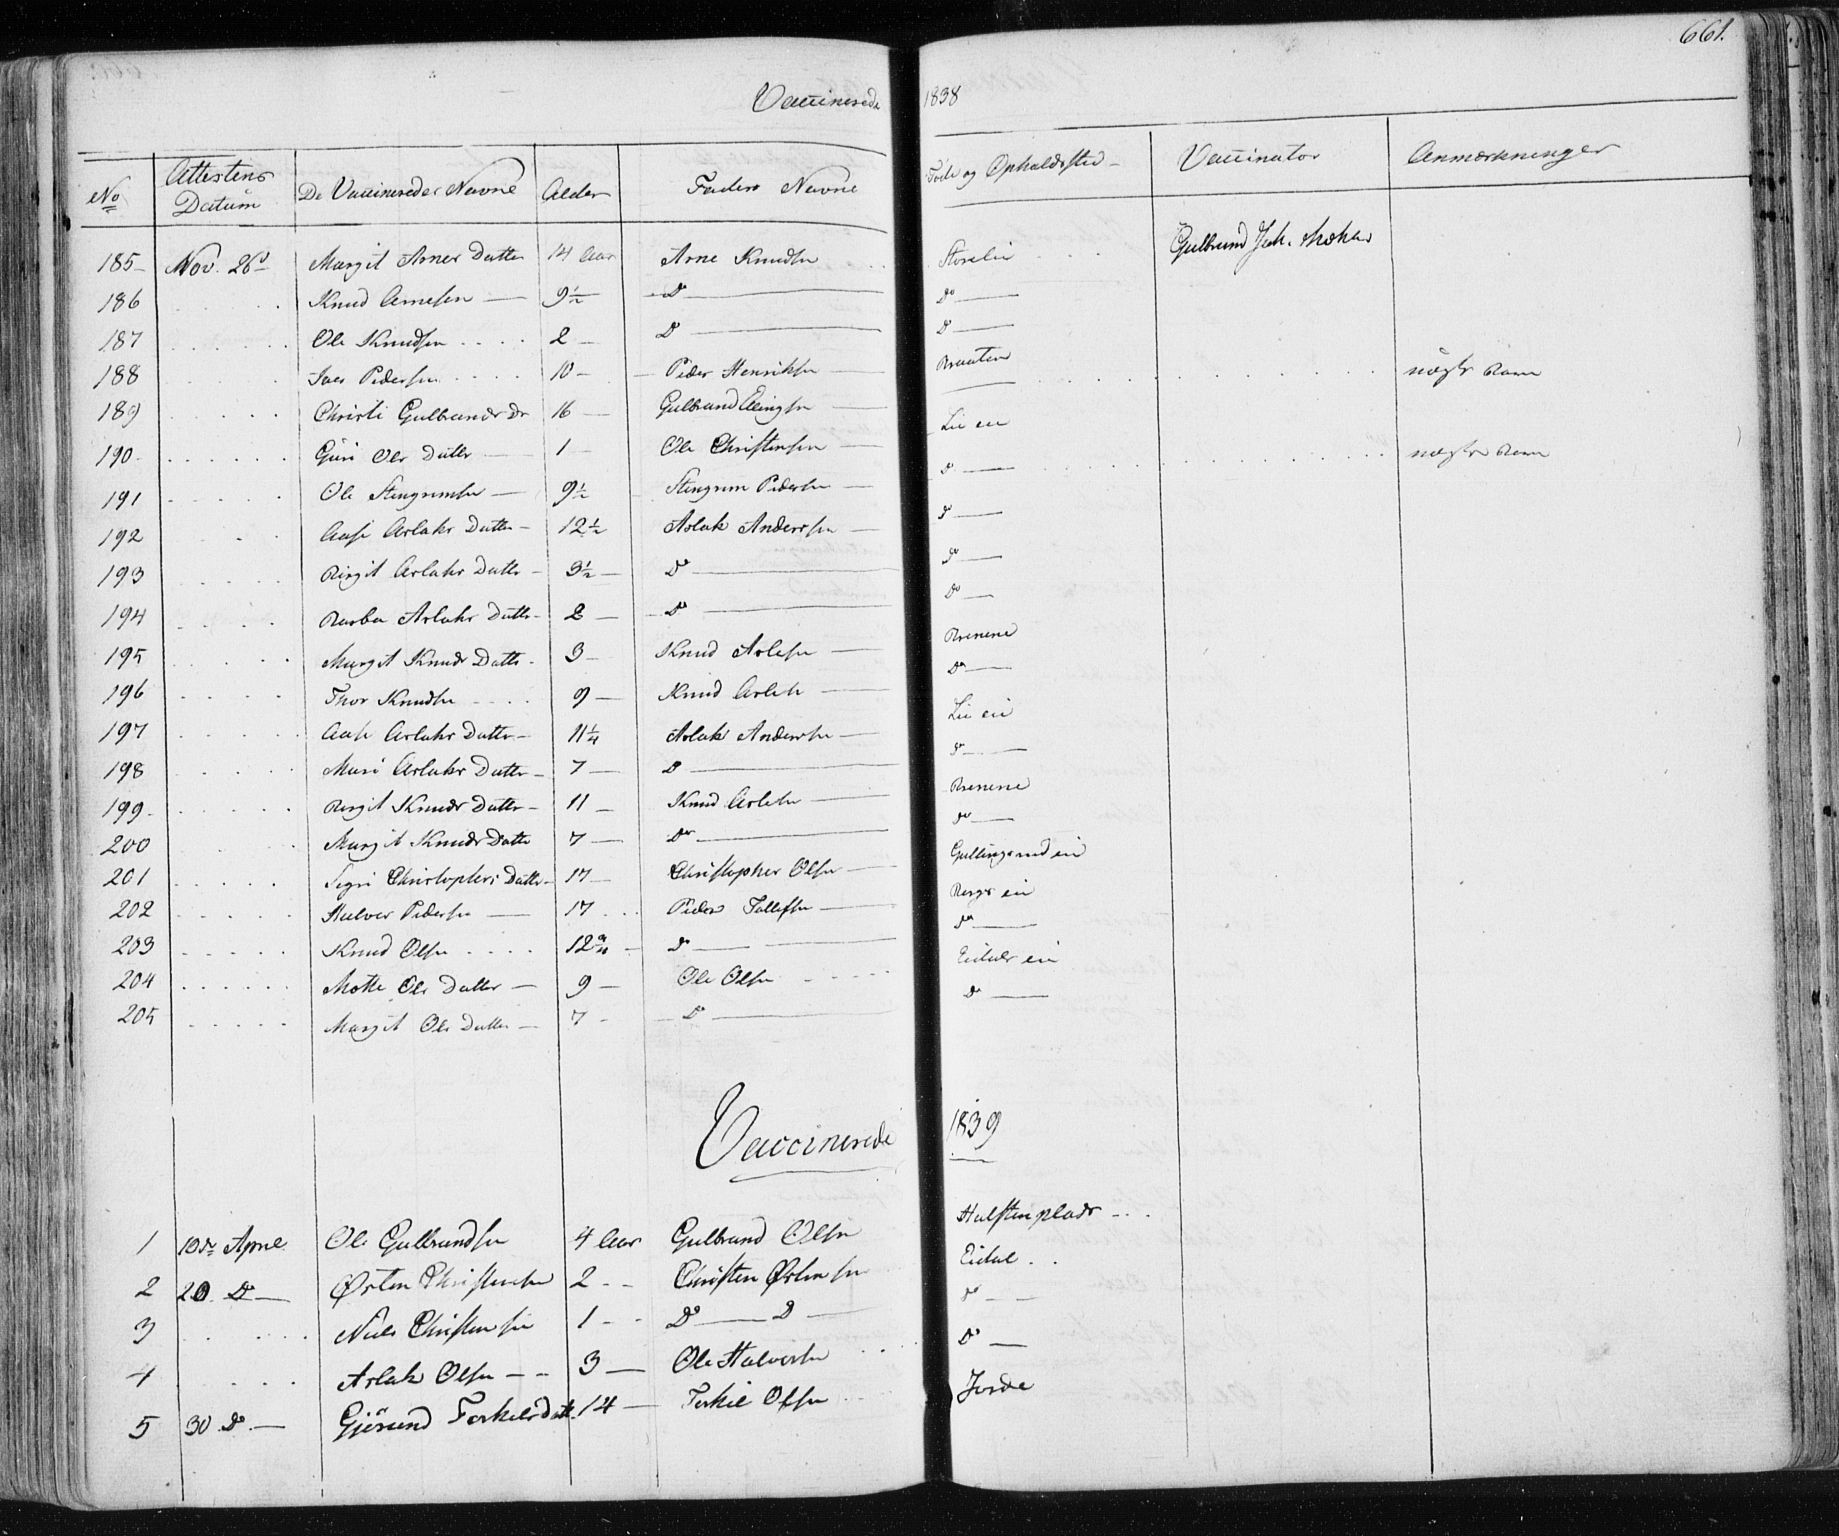 661.
Vaccinerede 1838
No Attestens Datum De Vaccineredes Navne Alder Faders Navne Føde og Opholdssted Vaccinator Anmærkninger
185 Nov. 26d Margit Arnes Datter 14 Aar Arne Knudsen Storelie Gulbrund Joh.
186 Knud Arnesen 9½ Do Do
187 Ole Knudsen 2 Do Do
188 Iver Pedersen 10 Peder Henriksen Braaten
189 Christi Gulbrands Dr 16 Gulbrand Elingsen Lie ei
190 Guri Ols Datter 1 Ole Christensen Do
191 Ole Stengrimsen 9½ Stengrim Pedersen Do
192 Aase Aslaks Datter 12½ Aslak Anderssen Do
193 Birgit Aslaks Datter 3½ Do Do
194 Barbu Aslaks Datter 2 Do
195 Margit Knuds Datter 3 Knud Aslesen Brenene
196 Thor Knudsen 9 Knud Aslesen Do
197 Aase Aslaks Datter 11¼ Aslak Anderssen Lie ei
198 Mari Aslaks Datter 7 Do Do
199 Birgit Knuds Datter 11 Knud Aslesen Brenene
200 Margit Knuds Datter 7 Do Do
201 Sigri Christophers Datter 17 Christopher Olsen Gullingsrud ei
202 Halvor Pedersen 17 Peder Tollefsen Bergs ei
203 Knud Olsen 12¾ Do Do
204 Mette Ols Datter 9 Ole Olsen Eidals ei
205 Margit Ols Datter 7 Do Do
Vaccinerede 1839
1 10de April Ole Gulbrandsen 4 Aar Gulbrand Olsen Halstenplads
2 20 Do Østen Christensen 2 Christen Østensen Eidal
3 Niels Christensen 1 Do Do Do
4 Aslak Olsen 3 Ole Halvorsen Do
5 30 Do Gjörund Torkelsdatt. 14 Torkil Olsen Jorde